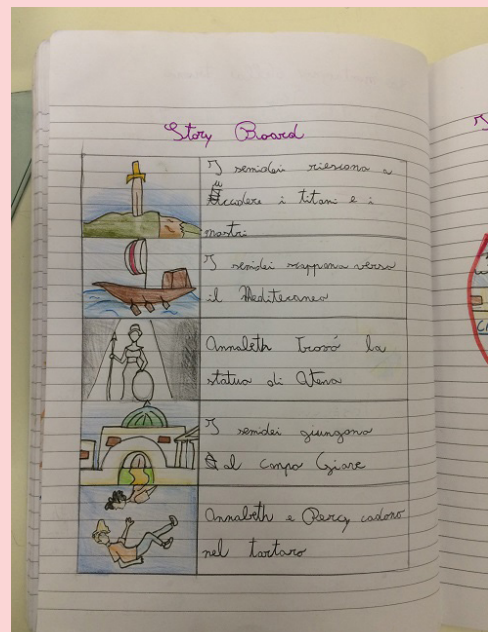 Story Board
I semidei riescono a
uccidere i titani e i
mostri
I semidei scappano verso
il Mediteraneo
Annabeth trovò la
statua di Atena
I semidei giungono
al campo Giove
Annabeth e Percy cadono
nel tartaro